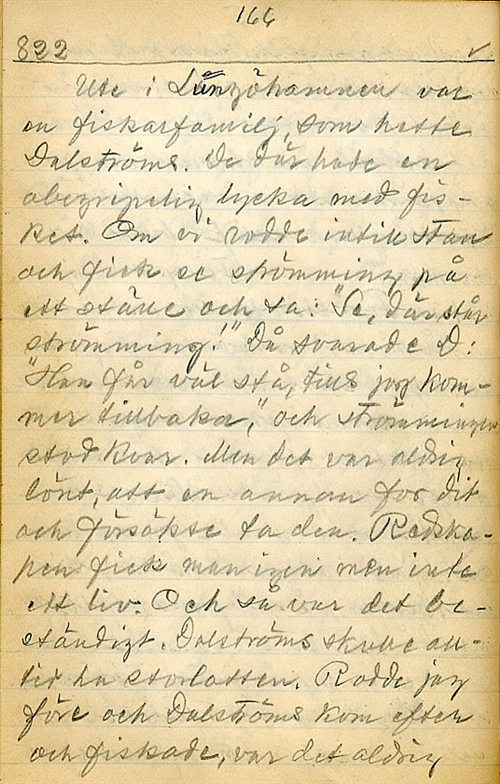 166
822 ✓
Ute i Långöhamnen var
en fiskarfamilj, som hette
Dalströms. De där hade en
obegripelig lycka med fis-
ket. Om vi rodde intill stan
och fick se strömming på
ett ställe och sa: "Se, där står
strömming!" Då svarade D:
"Han får väl stå, tills jag kom-
mer tillbaka," och strömmingen
stod kvar. Men det var aldrig
lönt, att en annan for dit
och försökte ta den. Redska-
pen fick man igen men inte
ett liv. Och så var det be-
ständigt. Dalströms skulle all-
tid ha storlotten. Rodde jag
före och Dalströms kom efter
och fiskade, var det aldrig